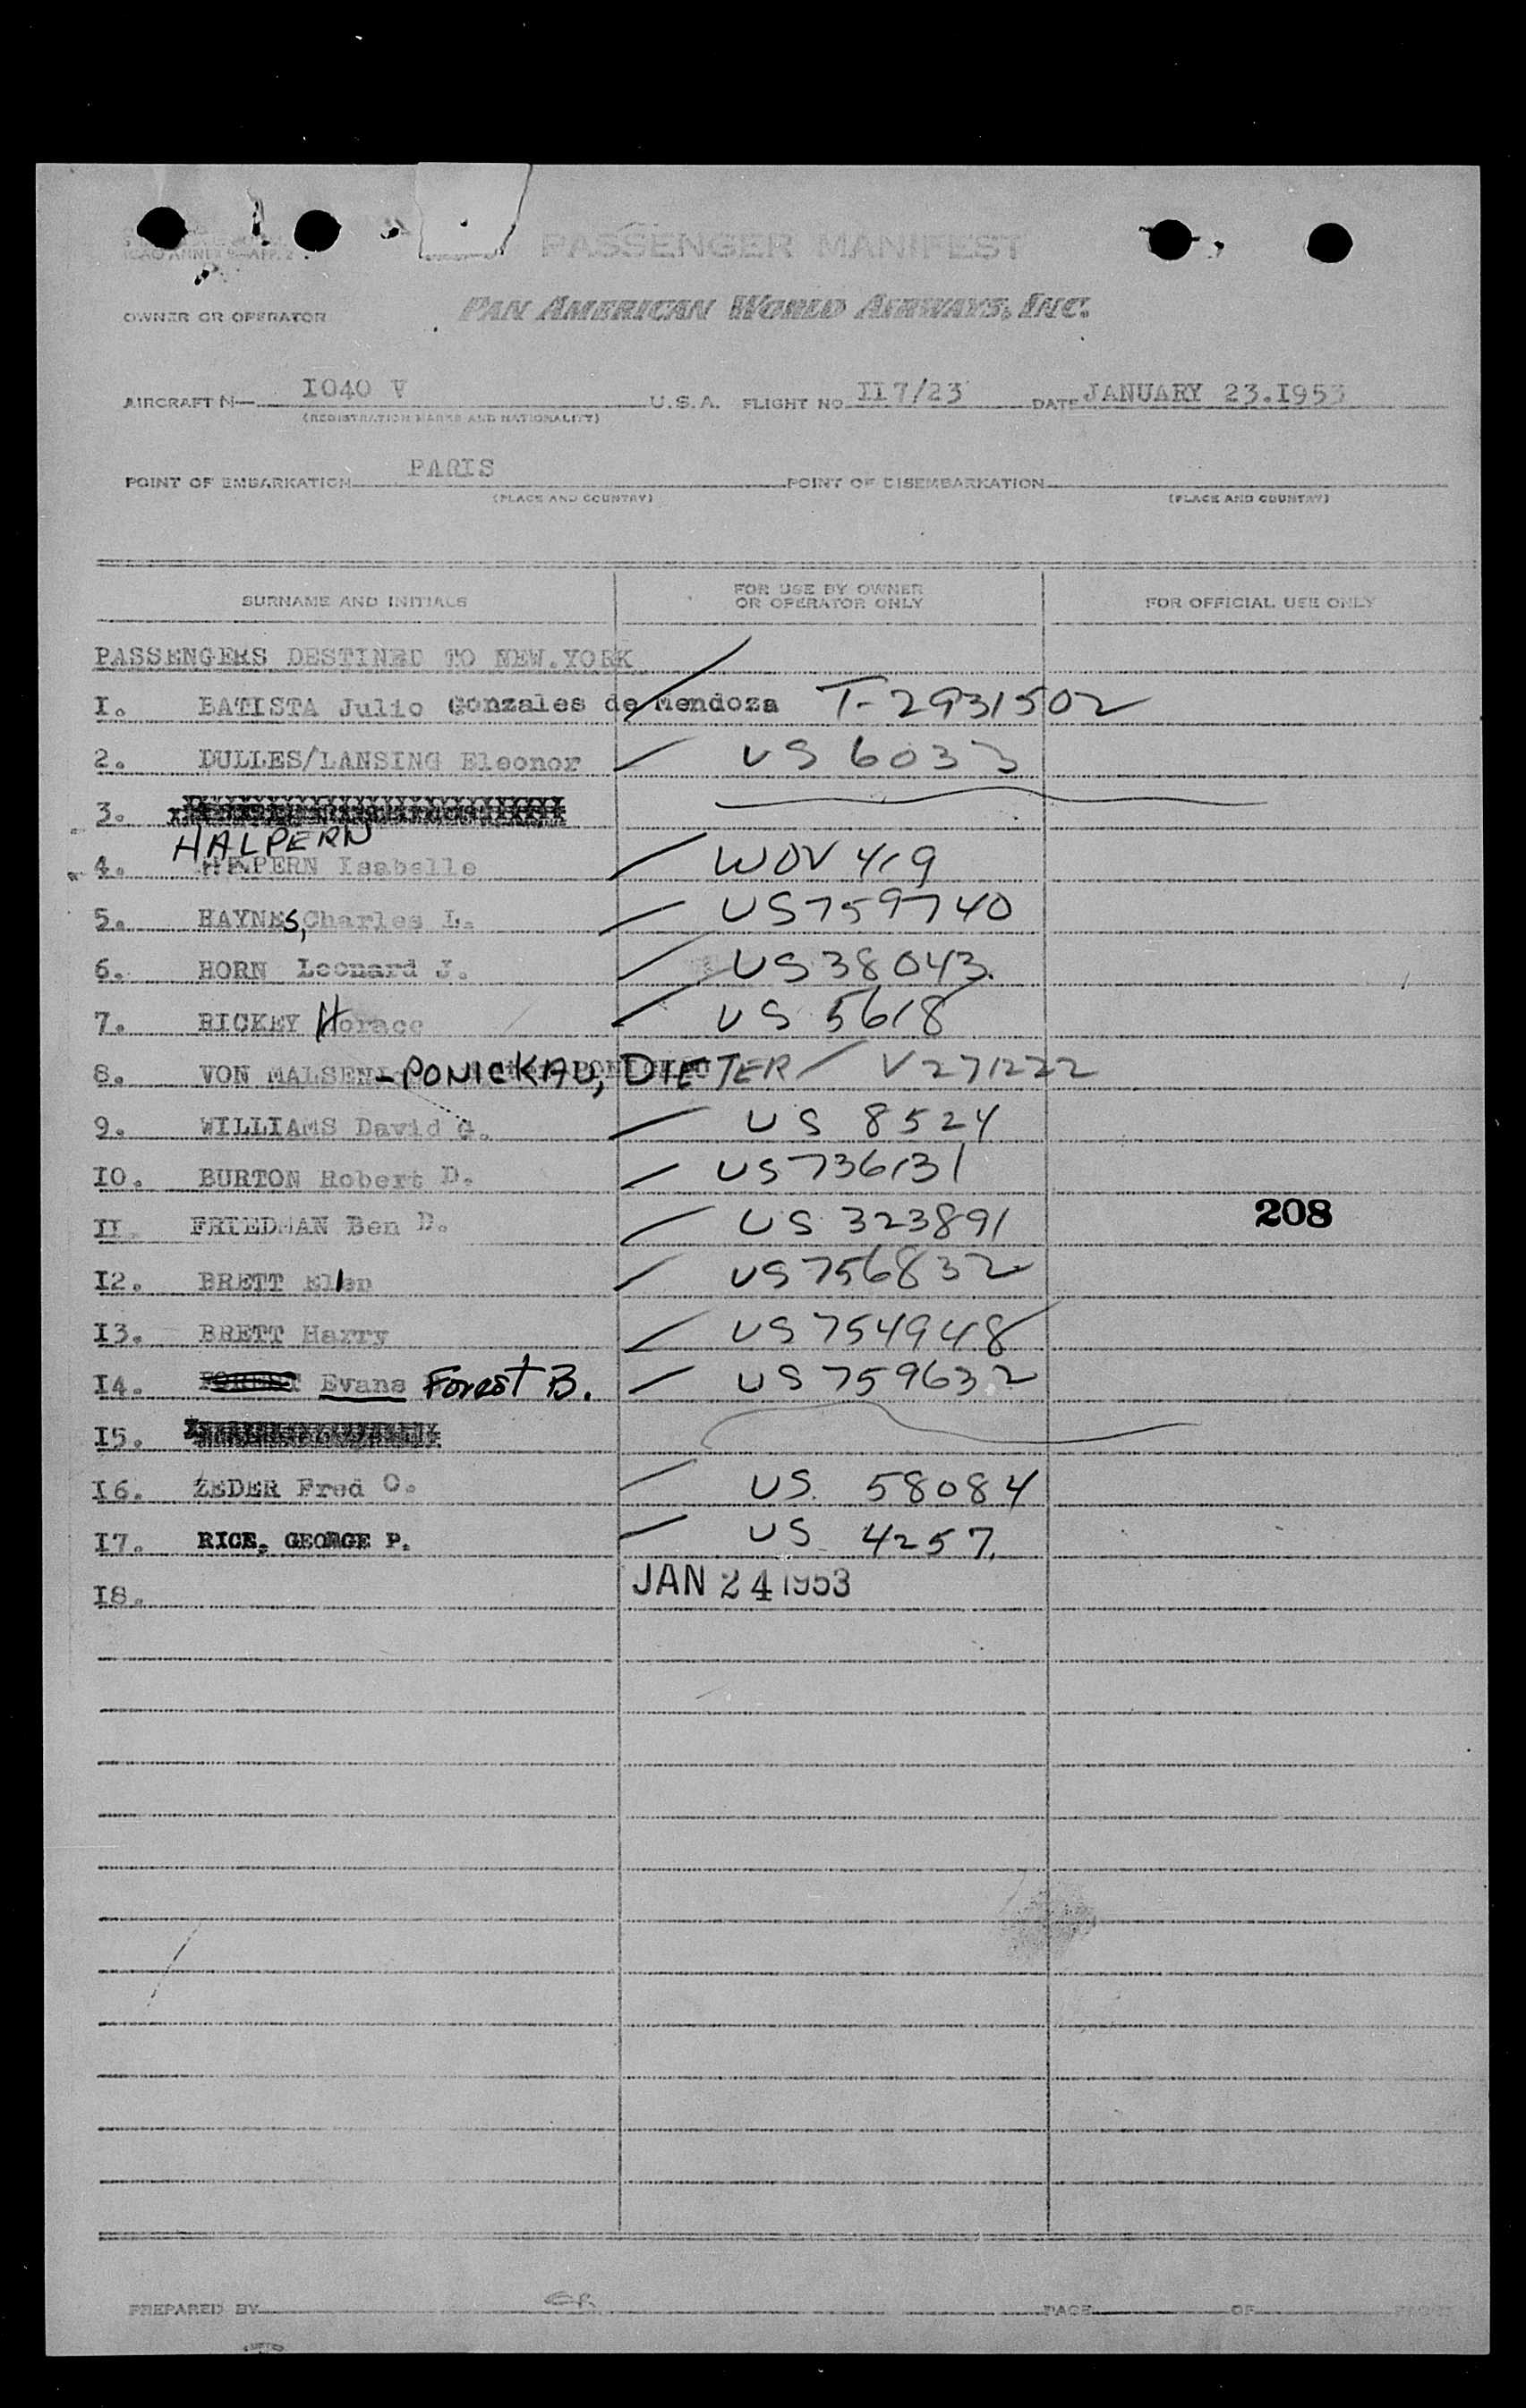 ICAO ANNEX 9—APP. 2
PASSENGER MANIFEST
OWNER OR OPERATOR PAN AMERICAN WORLD AIRWAYS, INC.
AIRCRAFT N— I040 V U.S.A. FLIGHT NO II7/23 DATE JANUARY 23.I953
(REGISTRATION MARKS AND NATIONALITY)
POINT OF EMBARKATION PARIS POINT OF DISEMBARKATION
(PLACE AND COUNTRY) (PLACE AND COUNTRY)
SURNAME AND INITIALS FOR USE BY OWNER OR OPERATOR ONLY FOR OFFICIAL USE ONLY
PASSENGERS DESTINED TO NEW.YORK
I. BATISTA Julio Gonzales de Mendoza T-2931502
2. DULLES/LANSING Eleonor US 6033
3.
HALPERN
4. PERN Isabelle WOV 419
5. HAYNES, Charles L. US759740
6. HORN Leonard J. US38043.
7. RICKEY Horace US 5618
8. VON MALSEN-PONICKAU, DIETER V271222
9. WILLIAMS David G. US 8524
I0. BURTON Robert D. US736131
II. FRIEDMAN Ben D. US 323891 208
I2. BRETT Ellen US756832
I3. BRETT Harry US754948
I4. FOREST Evans Forest B. US759632
I5.
I6. ZEDER Fred O. US. 58084
I7. RICE, GEORGE P. US 4257.
I8. JAN 24 1953
PREPARED BY PAGE OF